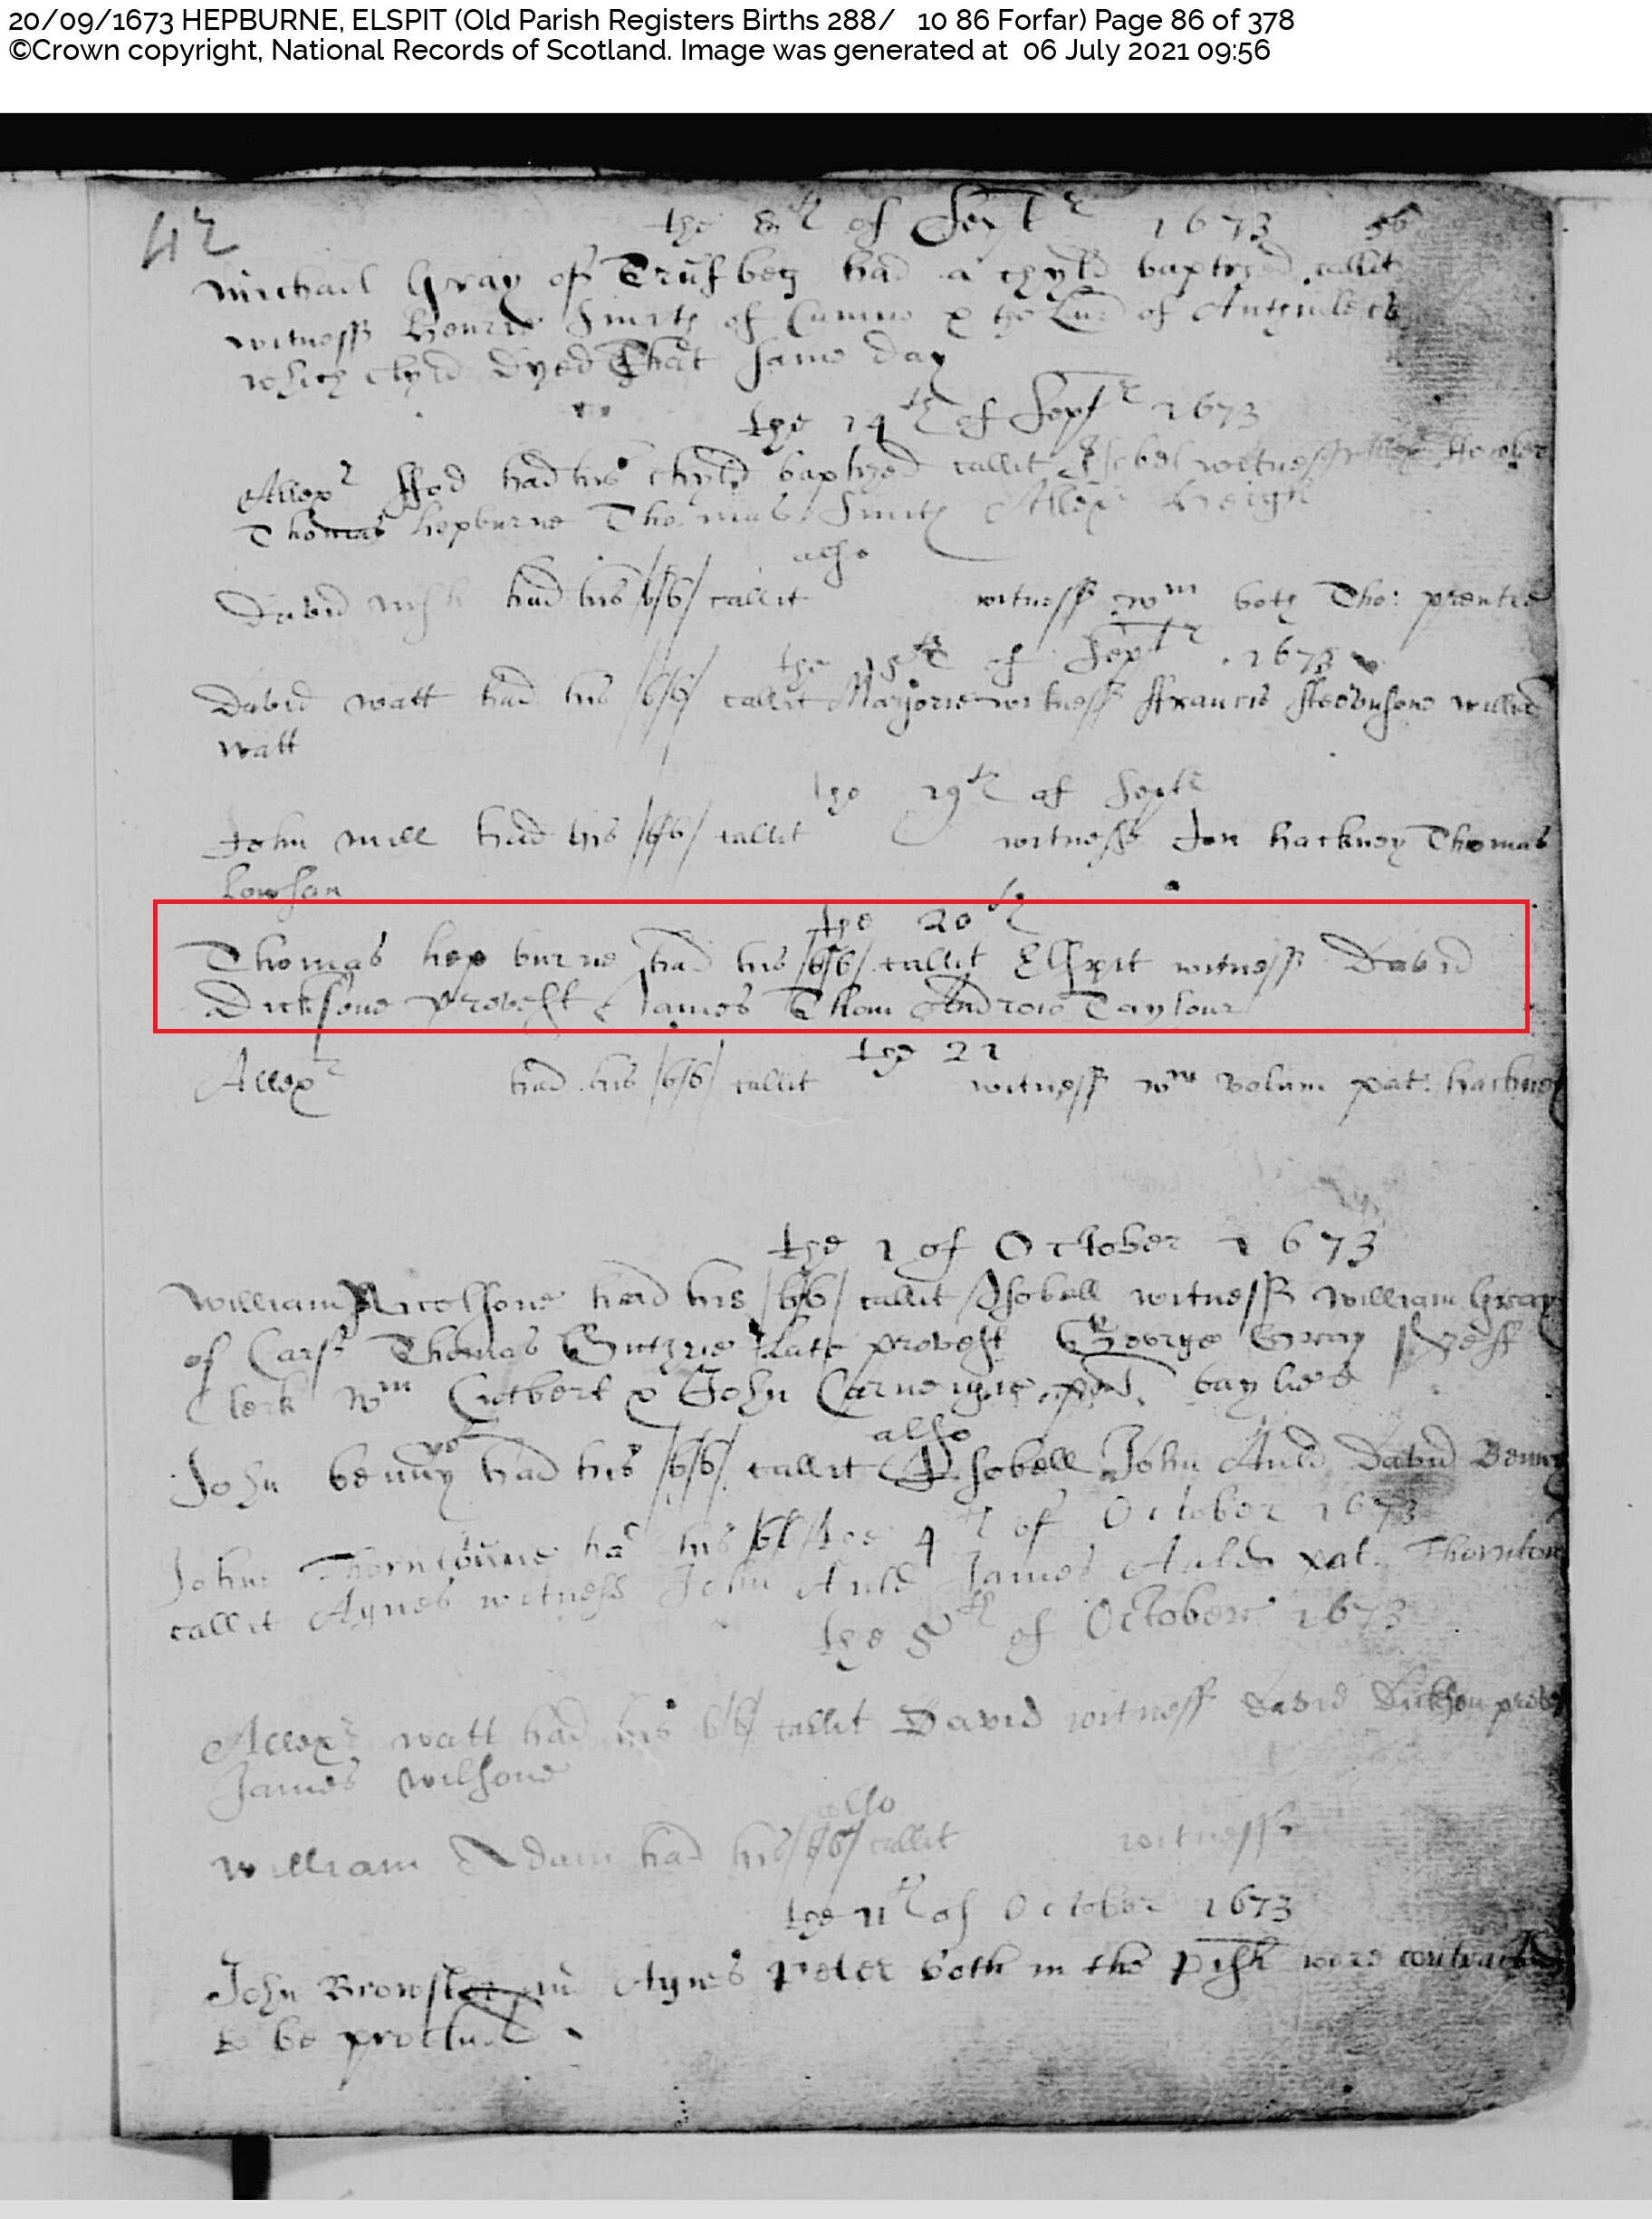 20/09/1673 HEPBURNE, ELSPIT (Old Parish Registers Births 288/ 10 86 Forfar) Page 86 of 378
©Crown copyright, National Records of Scotland. Image was generated at 06 July 2021 09:56
42
the 8th of Septr 1673
Michael Gray of had a chyld baptized callit
witness Henrie Smith of &  the Lard of
which chyld dyed That same day
the 14th of Septr 1673
Allexr had his chyld baptized callit Isobel witness Allexr
Thomas hepburne Thomas Smith Allexr
also
David had his /bb/ callit witness Wm both Tho: prentice
the 15th of Septr 1673
David watt had his /bb/ callit Marjorie witness ffrancis Steevnsone william
watt
the 19th of Septr
John mill had his /bb/ callit witness Jon hackney Thomas
Lowsan
the 20th
Thomas hepburne had his /bb/ callit Elspit witness David
Dicksone Provest & James Thom Androw Taylour
the 21
Allexr had his /bb/ callit witness Wm pat: hackney
the 1 of October 1673
William Nicolsone had his /bb/ callit Isobell witness William Gray
of Carse Thomas Guthrie late provest George Gray
Clerk Wm Cutbert & John Carnegie baylies
also
John benny had his /bb/ callit Isobell John Auld David Benny
John Thorntoune had his /bb/ the 4th of October 1673
callit Agnes witness John Auld James Auld pat: Thornton
the 5th of October 1673
Allexr watt had his bb/ callit David witness David Dickson provest
James Wilsone
also
William Adam had his /bb/ callit witness
the 11th of October 1673
John Browster and Agnes Peter both in the pish were contracted
to be proclaimed